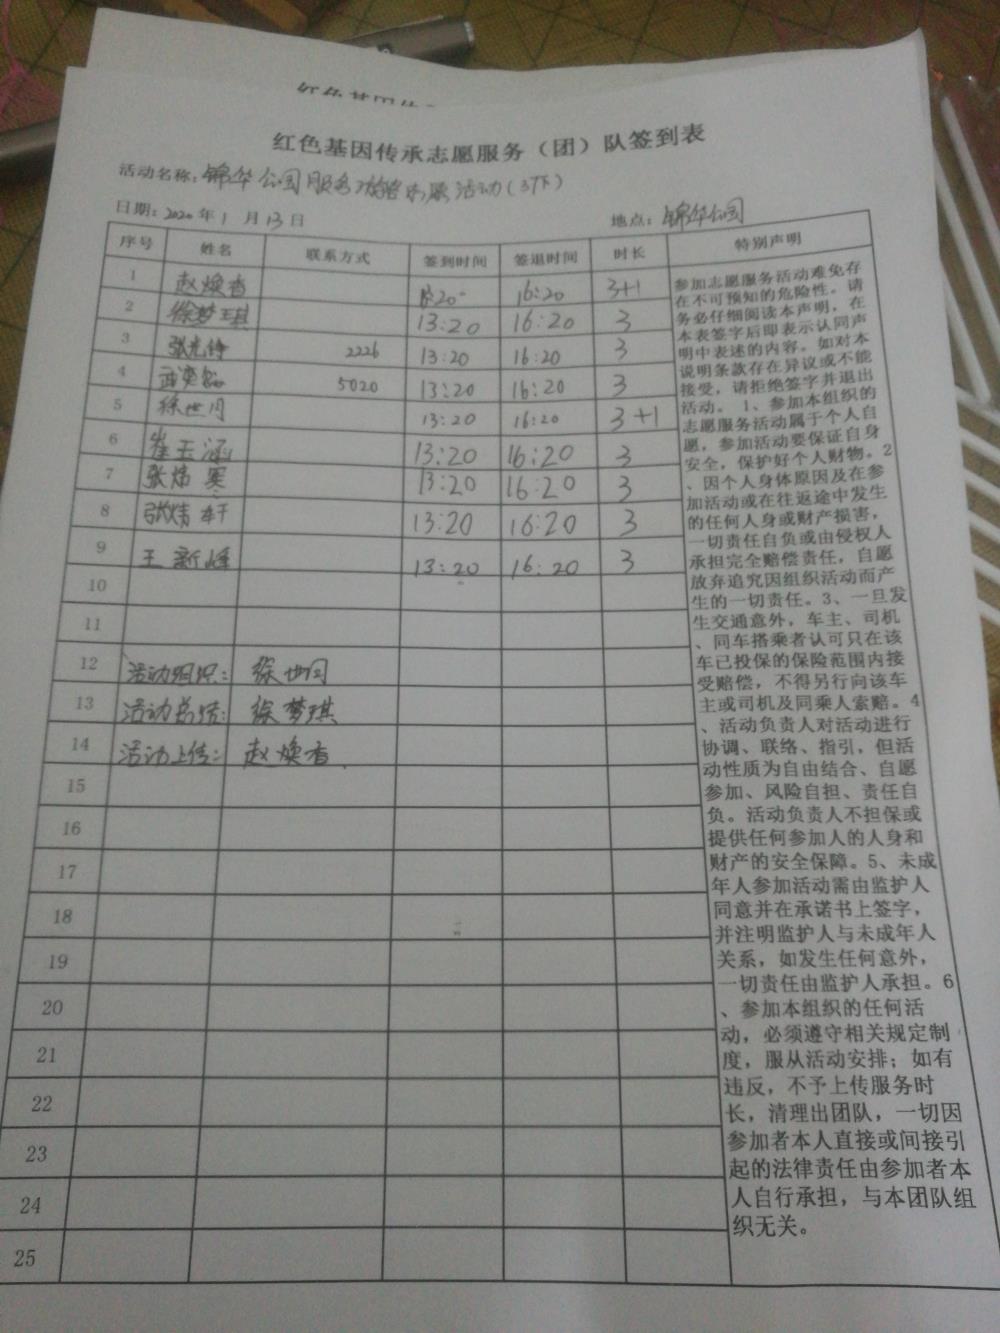 红色基因传
红色基因传承志愿服务（团）队签到表
活动名称：锦华公园服务 活动（3下）
日期：2020年1月13日 地点：锦华公园
序号 姓名 联系方式 签到时间 签退时间 时长 特别声明
1 赵焕香 16:20 3+1
2 徐梦琪 13:20 16:20 3
3 2226 13:20 16:20 3
4 5020 13:20 16:20 3
5 徐世同 13:20 16:20 3+1
6 崔玉涵 13:20 16:20 3
7 13:20 16:20 3
8 13:20 16:20 3
9 王新峰 13:20 16:20 3
10
11
12 活动组织：徐世同
13 活动总结：徐梦琪
14 活动上传：赵焕香
15
16
17
18
19
20
21
22
23
24
25
参加志愿服务活动难免存
在不可预知的危险性。请
务必仔细阅读本声明，在
本表签字后即表示认同声
明中表述的内容。如对本
说明条款存在异议或不能
接受，请拒绝签字并退出
活动。 1、参加本组织的
志愿服务活动属于个人自
愿，参加活动要保证自身
安全，保护好个人财物。2
、因个人身体原因及在参
加活动或在往返途中发生
的任何人身或财产损害，
一切责任自负或由侵权人
承担完全赔偿责任，自愿
放弃追究因组织活动而产
生的一切责任。3、一旦发
生交通意外，车主、司机
、同车搭乘者认可只在该
车已投保的保险范围内接
受赔偿，不得另行向该车
主或司机及同乘人索赔。4
、活动负责人对活动进行
协调、联络、指引，但活
动性质为自由结合、自愿
参加、风险自担、责任自
负。活动负责人不担保或
提供任何参加人的人身和
财产的安全保障。5、未成
年人参加活动需由监护人
同意并在承诺书上签字，
并注明监护人与未成年人
关系，如发生任何意外，
一切责任由监护人承担。6
、参加本组织的任何活
动，必须遵守相关规定制
度，服从活动安排；如有
违反，不予上传服务时
长，清理出团队，一切因
参加者本人直接或间接引
起的法律责任由参加者本
人自行承担，与本团队组
织无关。